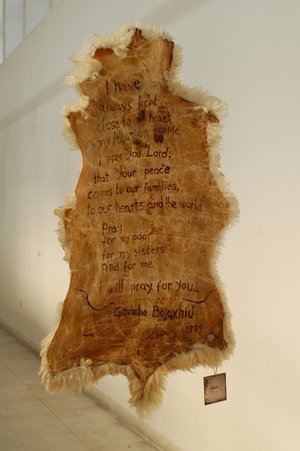 I have
always kept
close to heart
my Albanian people
I pray you Lord,
that your peace
comes to our families,
to our hearts and the world
Pray
for my poor
for my sisters
and for me
I will pray for you...
Gonxhe Bojaxhiu